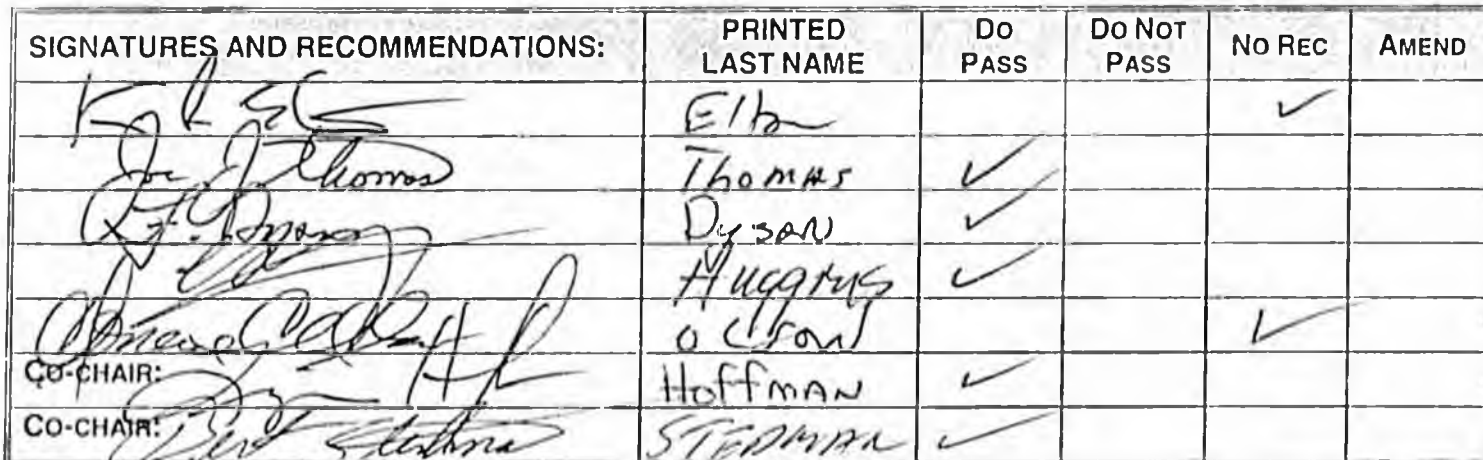 SIGNATURES AND RECOMMENDATIONS: PRINTED LAST NAME DO PASS DO NOT PASS NO REC AMEND
Elton ✓
Joe J Thomas Thomas ✓
Dyson ✓
Huggins ✓
Olson ✓
CO-CHAIR: Hoffman ✓
CO-CHAIR: Bert Stedman STEDMAN ✓